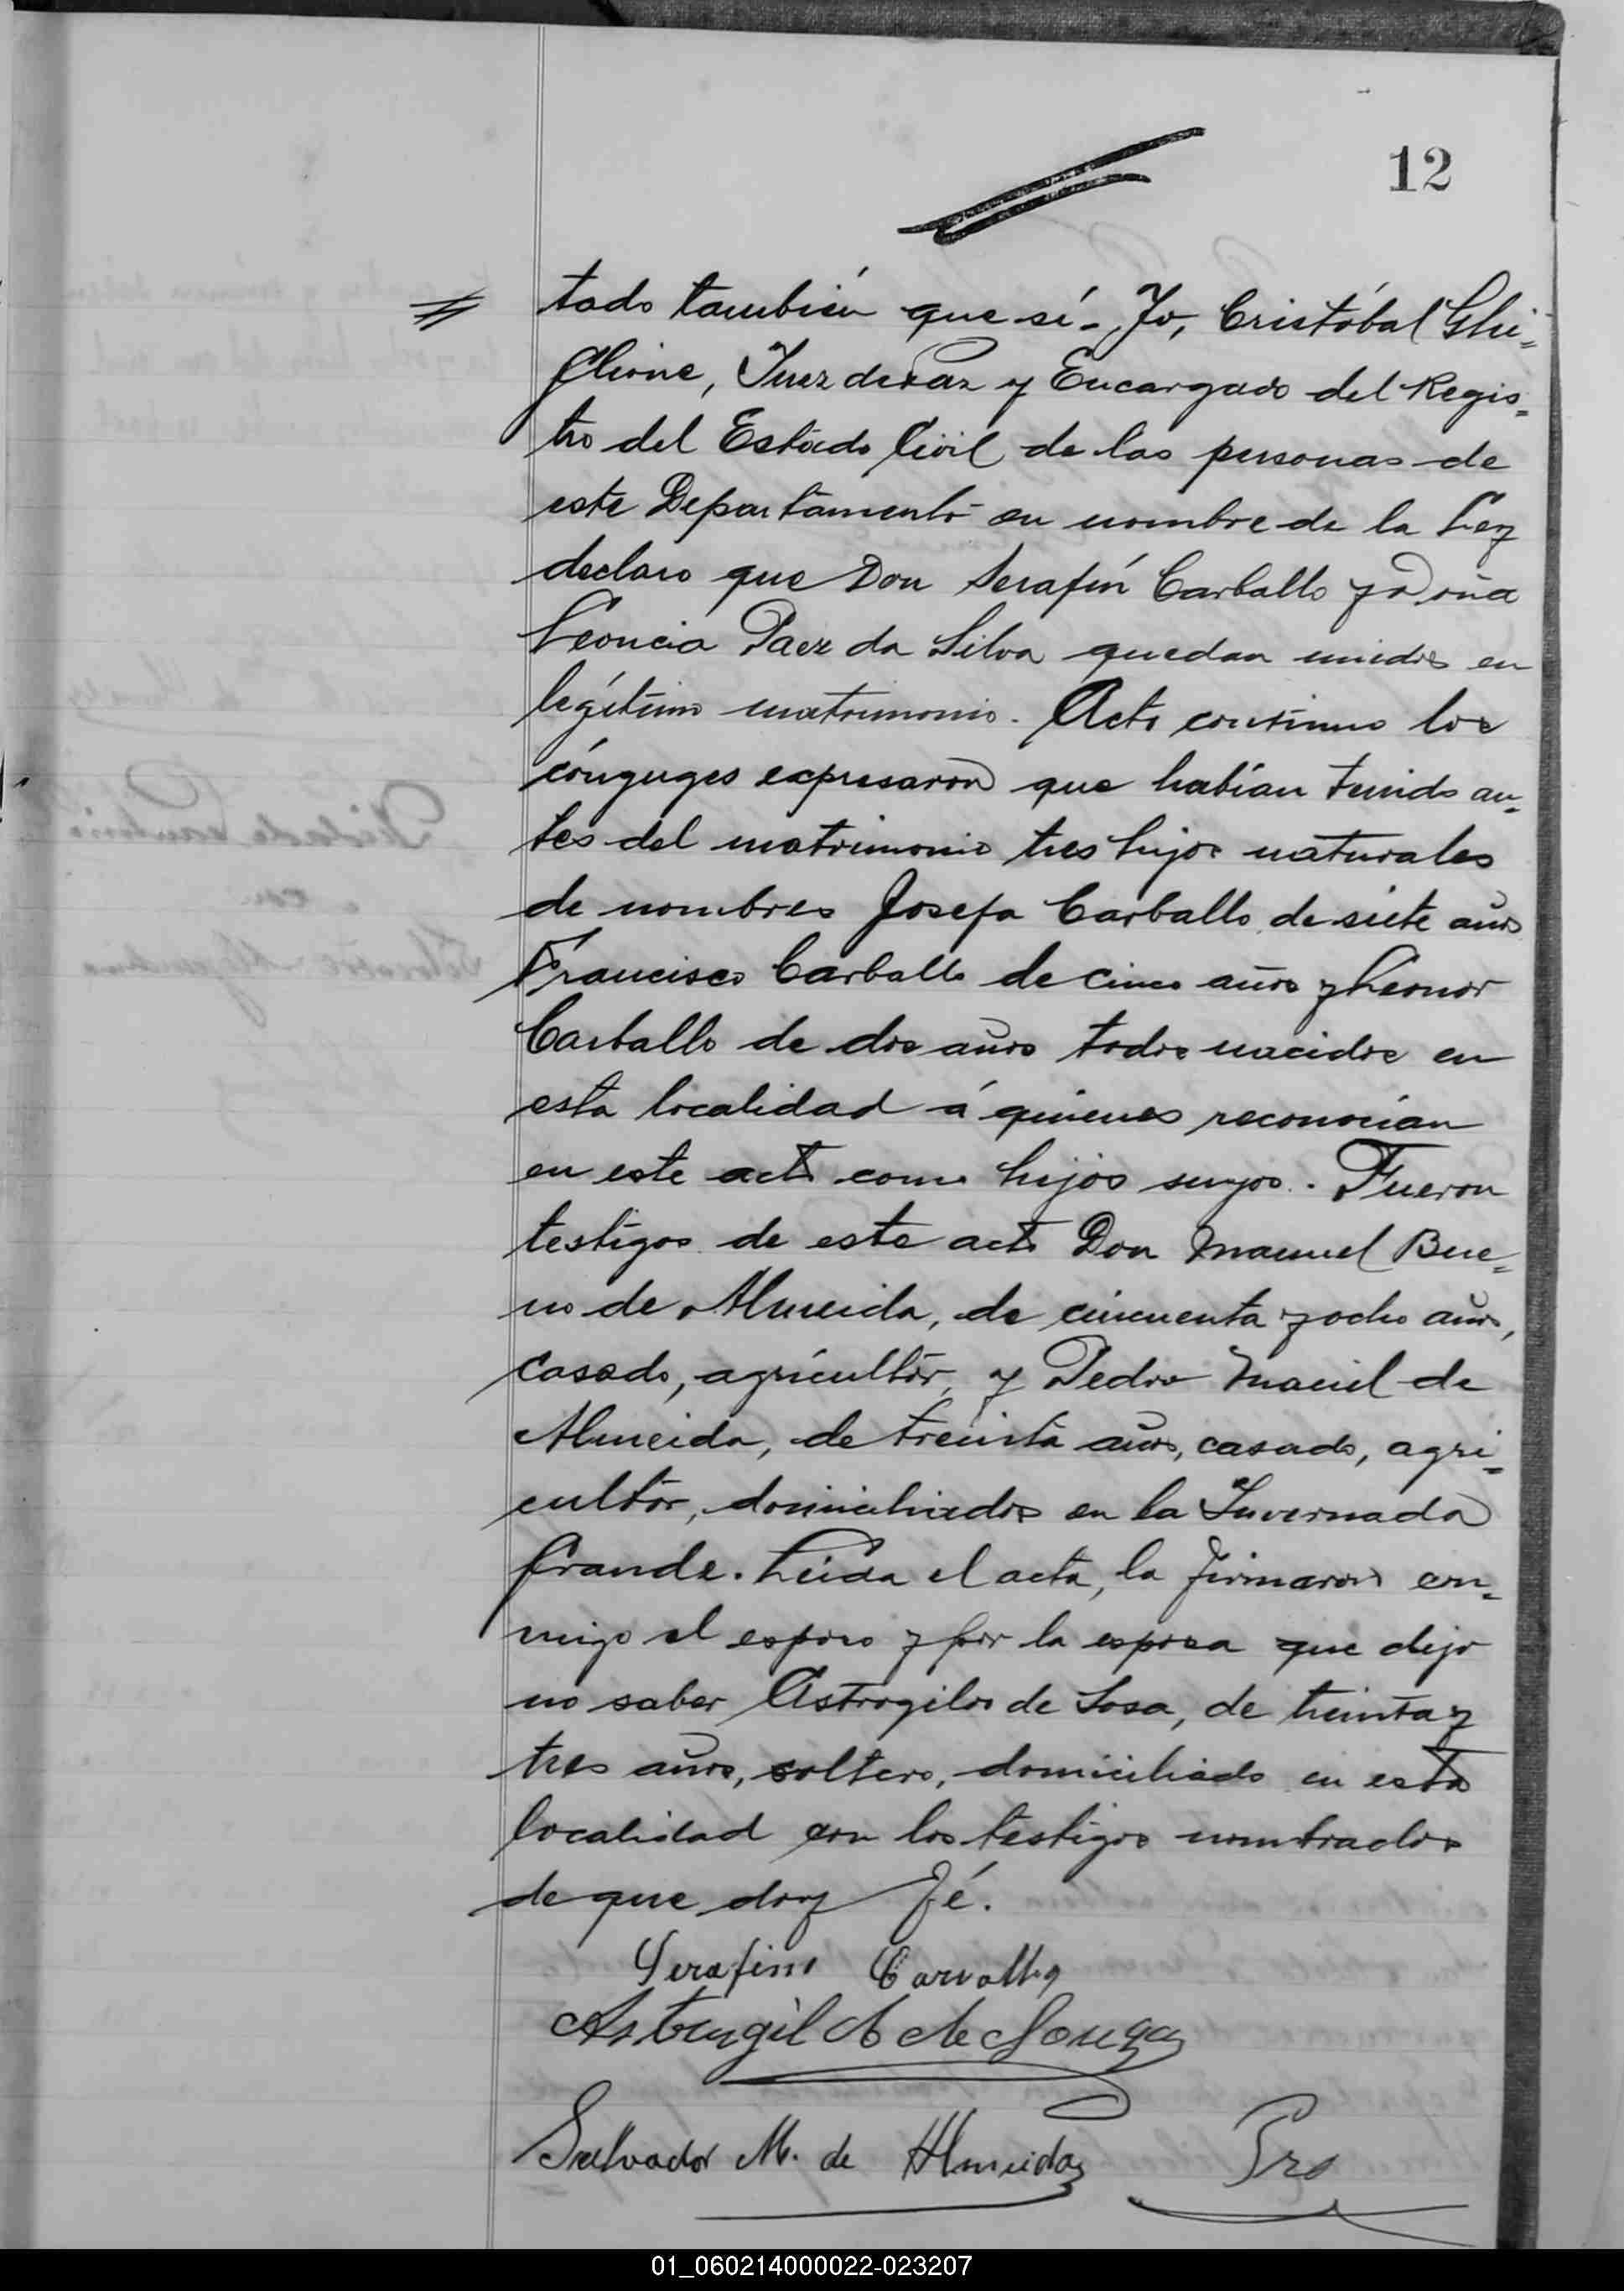 12
tado también que sí-, Yo, Cristóbal Ghi=
glione, Juez de Paz y Encargado del Regis=
tro del Estado Civil de las personas de
este Departamento en nombre de la Ley
declaro que Don Serafín Carballo y Doña
Leoncia Paez da Silva quedan unidos en
legítimo matrimonio. Acto contínuo los
cónyuges expresaron que habían tenido an=
tes del matrimonio tres hijos naturales
de nombres Josefa Carballo de siete años
Francisco Carballo de cinco años y Leonor
Carballo de dos años todos nacidos en
esta localidad á quienes reconocían
en este acto como hijos suyos. Fueron
testigos de este acto Don Manuel Bue=
no de Almeida, de cincuenta y ocho años,
casado, agricultor, y Pedro Maciel de
Almeida, de treinta años, casado, agri=
cultor, domiciliados en la Invernada
Grande. Leída el acta, la firmaron con=
migo el esposo y por la esposa que dijo
no saber Astrogildo de Sosa, de treinta y
tres años, soltero, domiciliado en esta
localidad con los testigos nombrados
de que doy fé.
Serafim Carvallo
de Souza
Salvador M. de Almeida
01_060214000022-023207